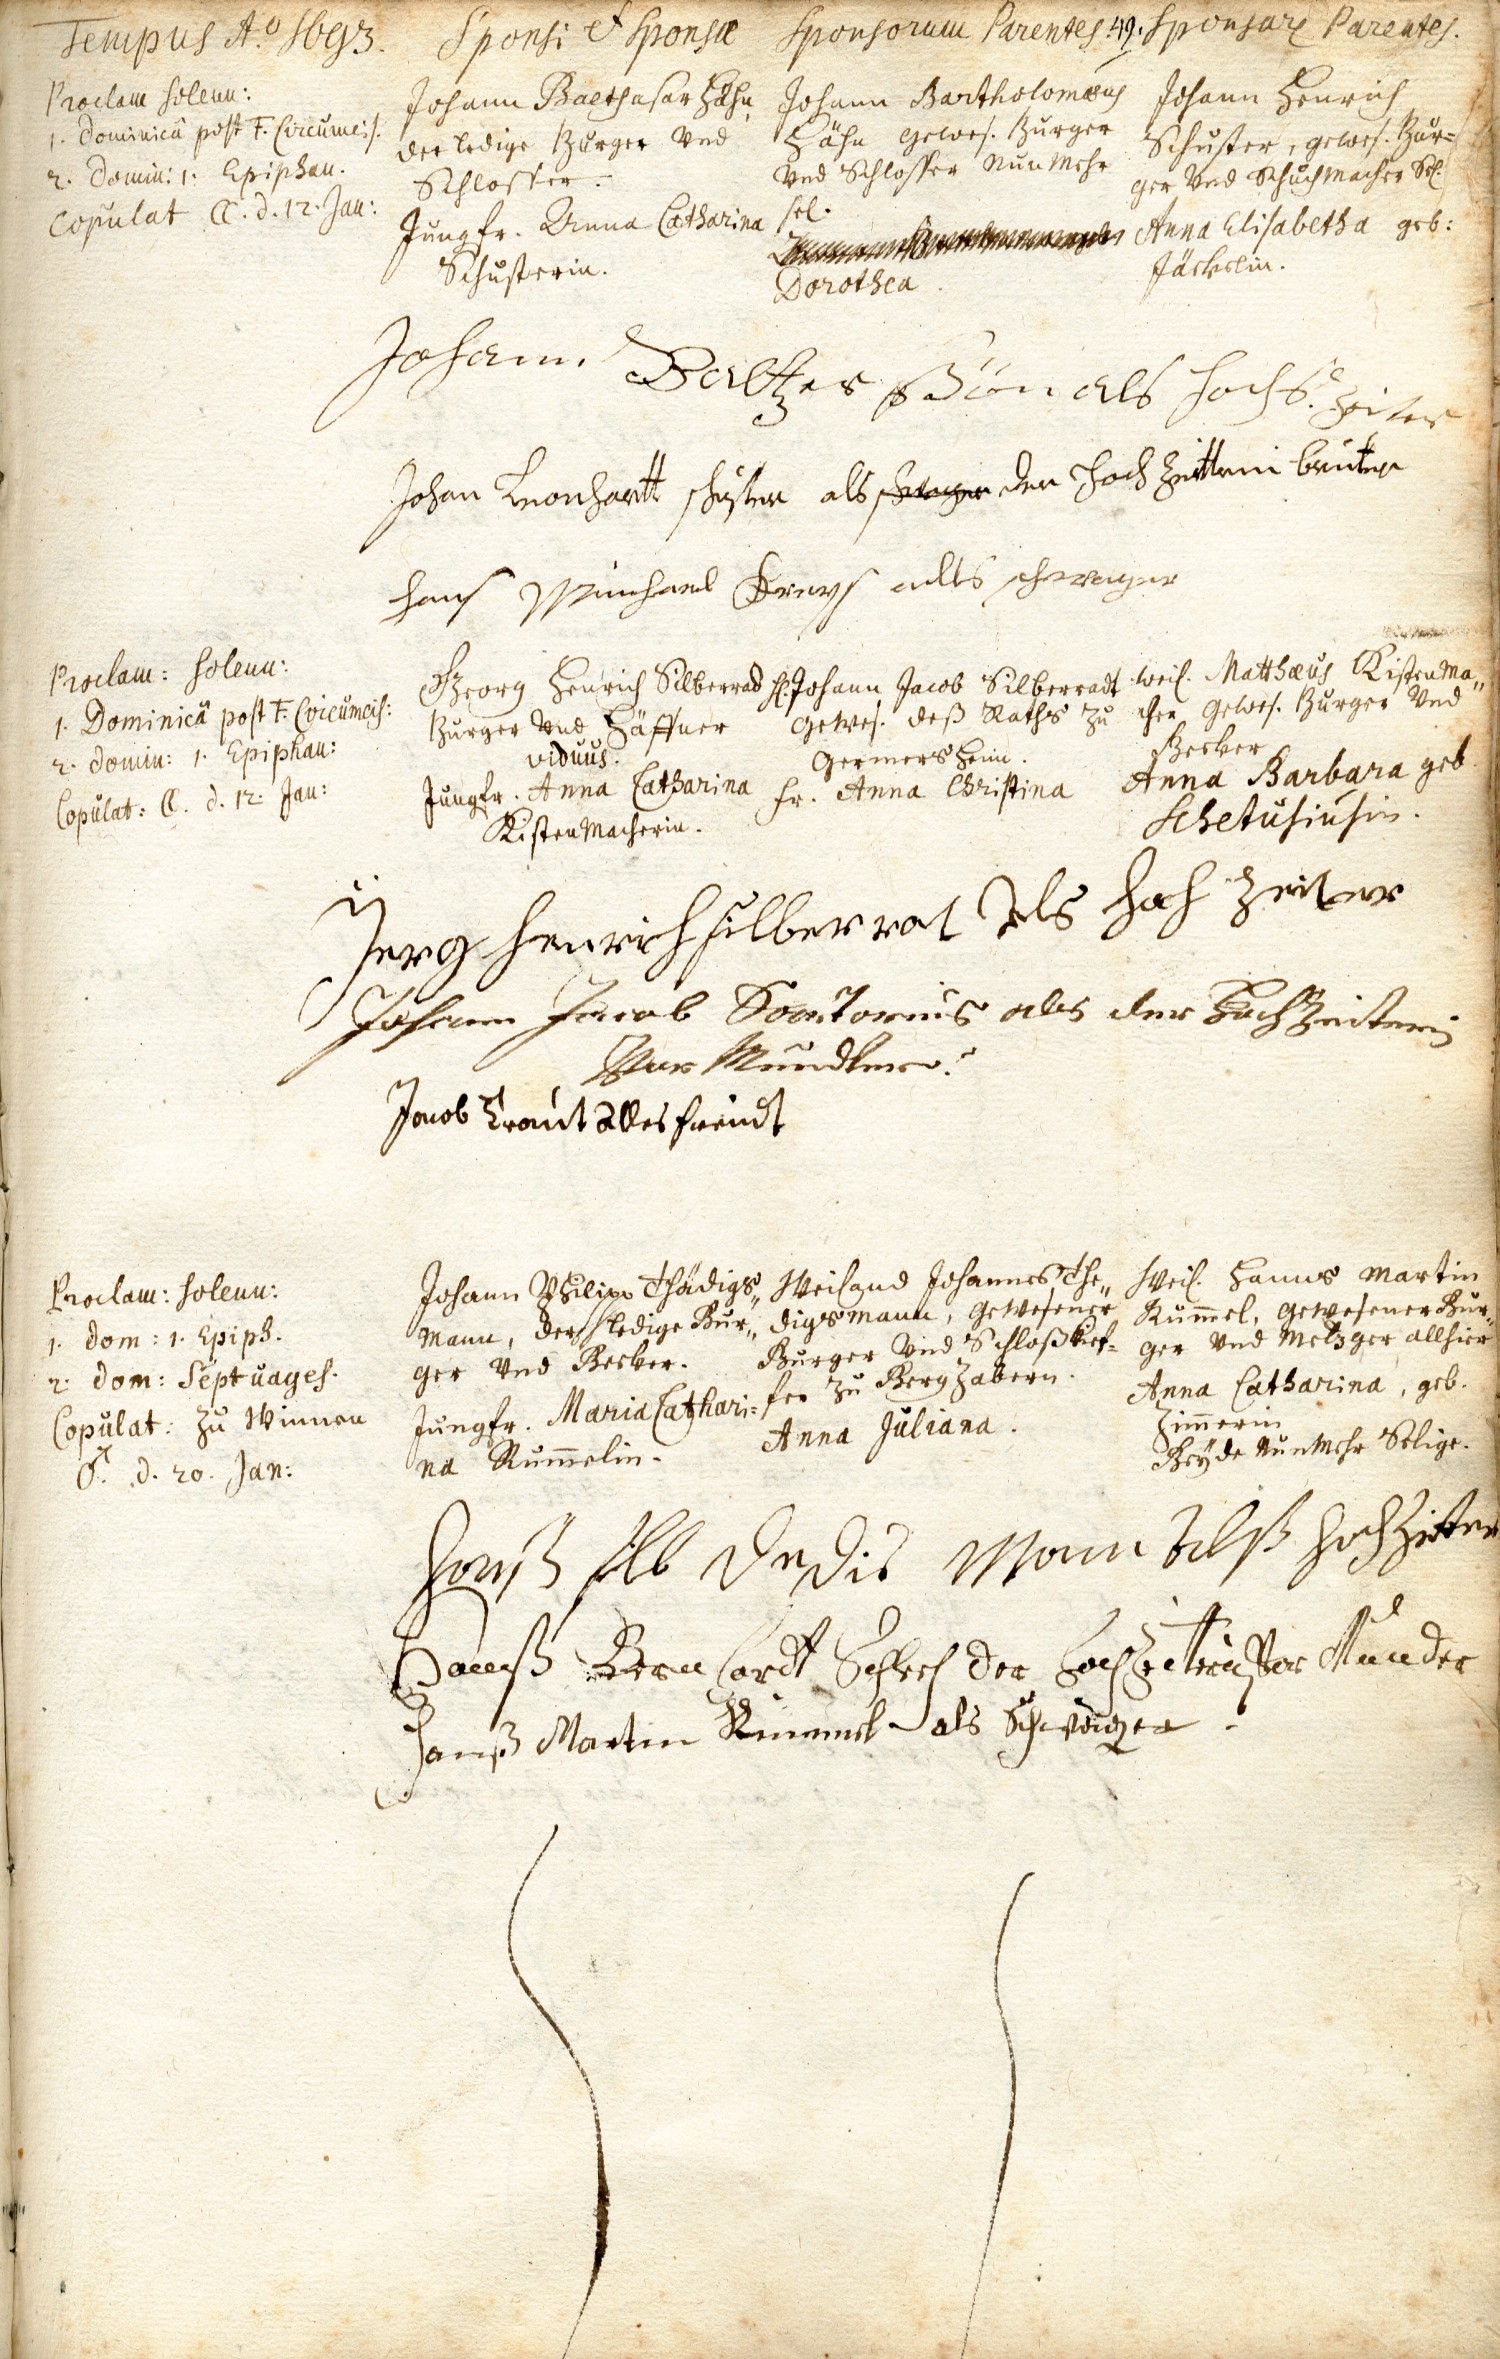 Tempus Ao. 1693.
Sponsi et Sponsæ
Sponsorum Parentes.
49.
Sponsarū Parentes.
Proclam solenn:
1. Dominicâ post F. Circumcis.
2. Domin: 1. Epiphan.
Copulat ☾. d. 12. Jan:
Johann Balthasar Hähn,
der ledige Burger Vnd
Schlosser.
Jungfr. Anna Catharina
Schusterin.
Johann Bartholomæus
Hähn gewes. Burger
Vnd Schlosser Nun Mehr
sel.
Dorothea.
Johann Henrich
Schuster, gewes. Bur=
ger Vnd Schuchmacher Sel.
Anna Elisabetha geb:
Jäckelin.
Johann Baltzer als hochs. Zeiter
Johan Leonhartt schuster als schwager der Hoch Zeitterin bruter
hans Michael als schwager
Proclam: solenn:
1. Dominicâ post F. Circumcis:
2. domin: 1. Epiphan:
Copulat: ☾. d. 12. Jan:
Georg Henrich Silberrad
Burger Vnd Häffner
viduus.
Jungfr. Anna Catharina
Kistenmacherin.
H. Johann Jacob Silberradt
gewes. deß Raths zu
Germersheim.
fr. Anna Christina
weil. Matthæus Kistenma„
cher gewes. Burger Vnd
Becker
Anna Barbara geb.
Schetusiusin.
Jerg Henrich silberrat Als Hoch Zeiter
Johann Jacob Sartorius als der HochZeiterin
Vor Mundter.
Jacob Traut alles freindt
Proclam: solenn:
1. dom: 1. Epiph.
2. dom: Septuages.
Copulat: zu Winnen
♂. d. 20. Jan:
Johann Philipp Thädigs„
Mann, der ledige Bur„
ger Vnd Becker.
Jungfr. Maria Cathari=
na Rum̄elin.
Weiland Johannes The„
digsmann, gewesener
Burger Vnd Schloßkief=
fer zu Bergzabern.
Anna Juliana.
Weil. Hanns Martin
Rum̄el, gewesener Bur„
ger Vnd Metzger allhier
Anna Catharina, geb.
Zim̄erin
Beÿde Nun Mehr Selige.
Hanß filb dedis Mann Alß HochZeiter
Hanß Bernhardt Schech der HochZeiterin Vor Munder
Hanß Martin Rummel als Schwager